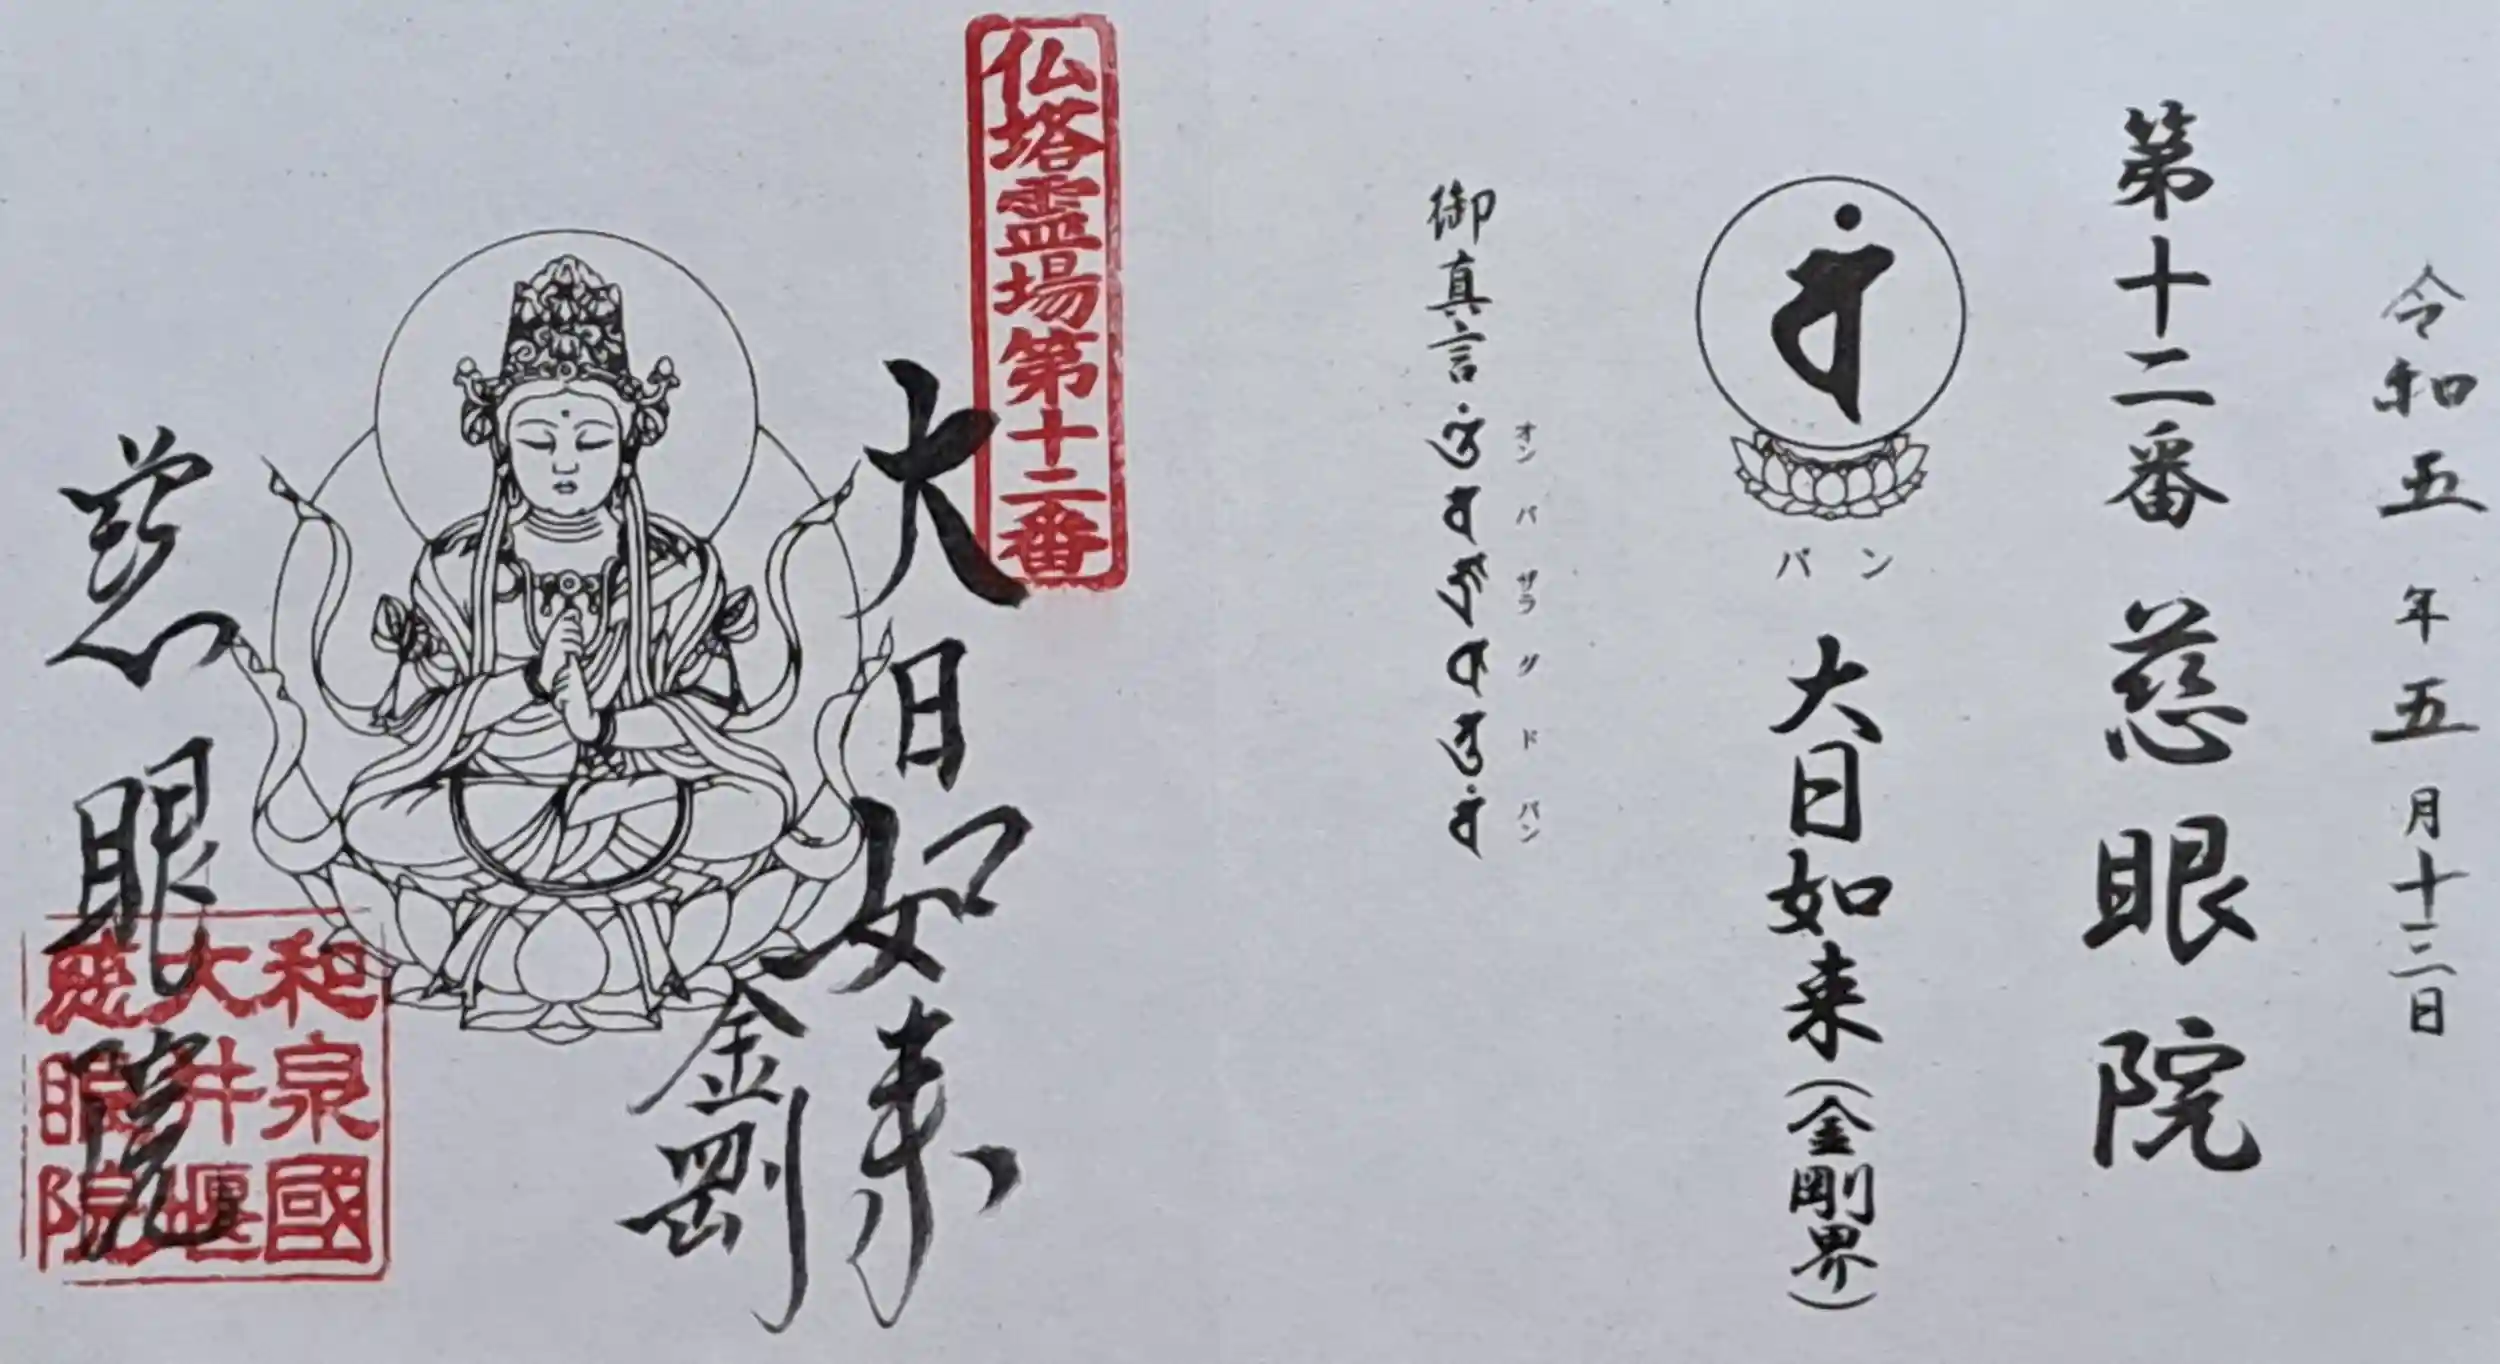 令和五年五月十三日
第十二番 慈眼院
バン
大日如来(金剛界)
オン バ ザラ ダ ド バン
御真言
仏塔霊場第十二番
大日如来
金剛
慈眼院
和泉國
大井堰
慈眼院